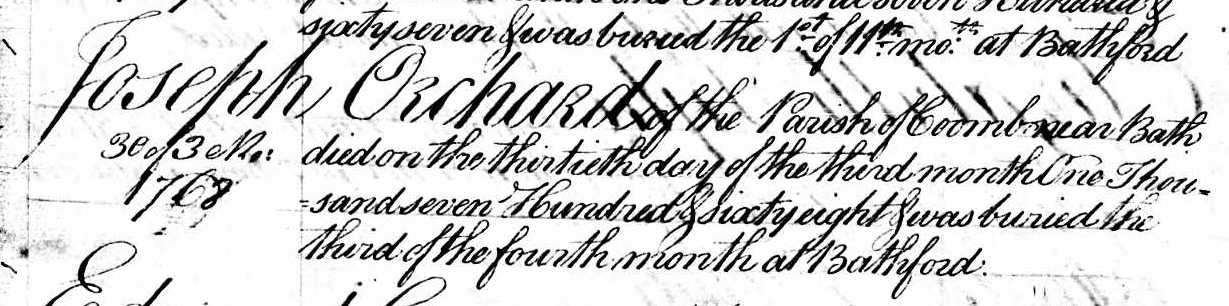 seven Hundred &
sixty seven & was buried the 1st of 11th mo.th at Bathford
Joseph Orchard of the Parish of Coomb near Bath
30 of 3 Mo: died on the thirtieth day of the third month One Thou=
1768 =sand seven Hundred & sixty eight & was buried the
third of the fourth month at Bathford: